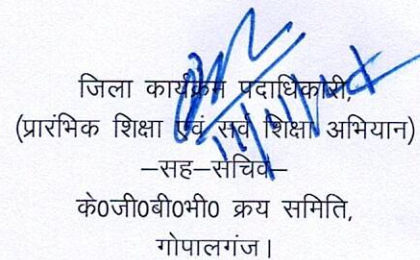 जिला कार्यक्रम पदाधिकारी,
(प्रारंभिक शिक्षा एवं सर्व शिक्षा अभियान)
–सह–सचिव–
के0जी0बी0भी0 क्रय समिति,
गोपालगंज।